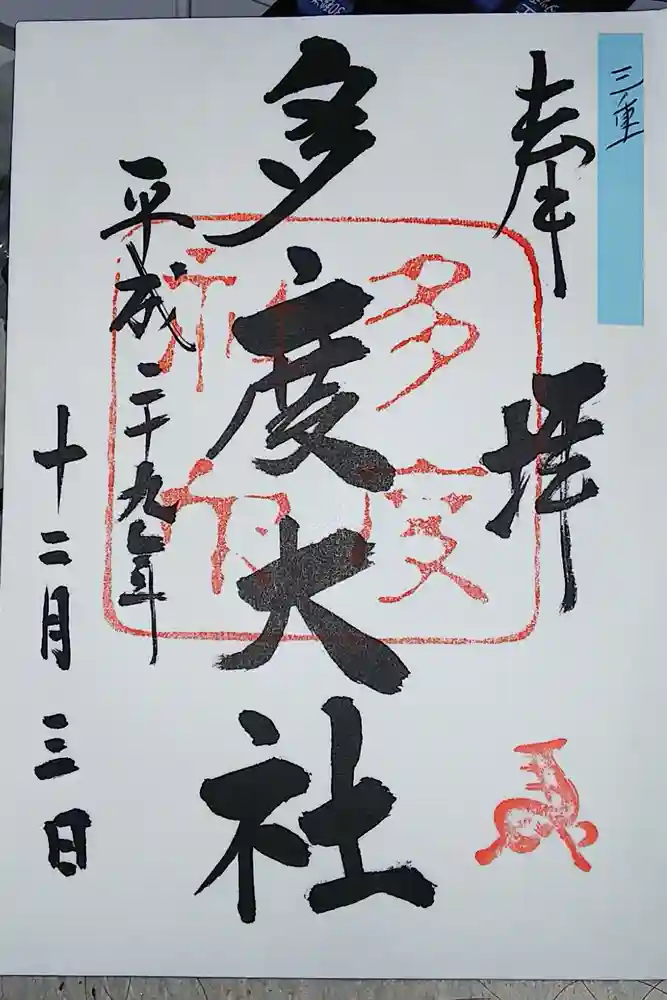 三重
奉拝
多度大社
多度
神印
平成二十九年
十二月三日